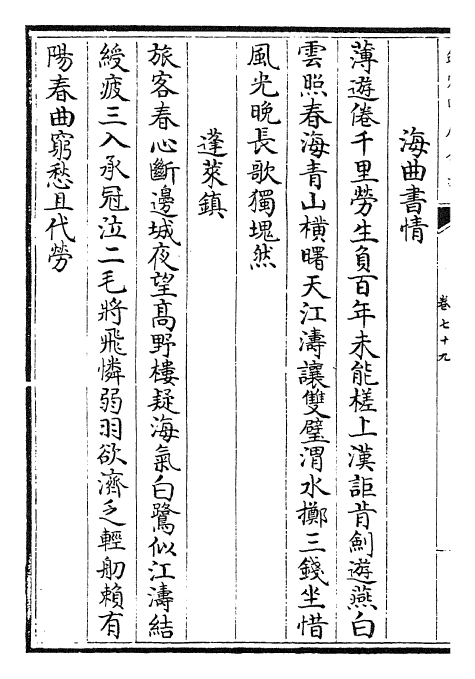 海曲書情
薄遊倦千里勞生負百年未能槎上漢詎肯劍遊燕白
雲照春海青山橫曙天江濤讓雙璧渭水擲三錢坐惜
風光晚長歌獨塊然
蓬萊鎮
旅客春心斷邊城夜望髙野樓疑海氣白鷺似江濤結
綬疲三入承冠泣二毛將飛憐弱羽欲濟乏輕舠賴有
陽春曲窮愁且代勞
卷七十九